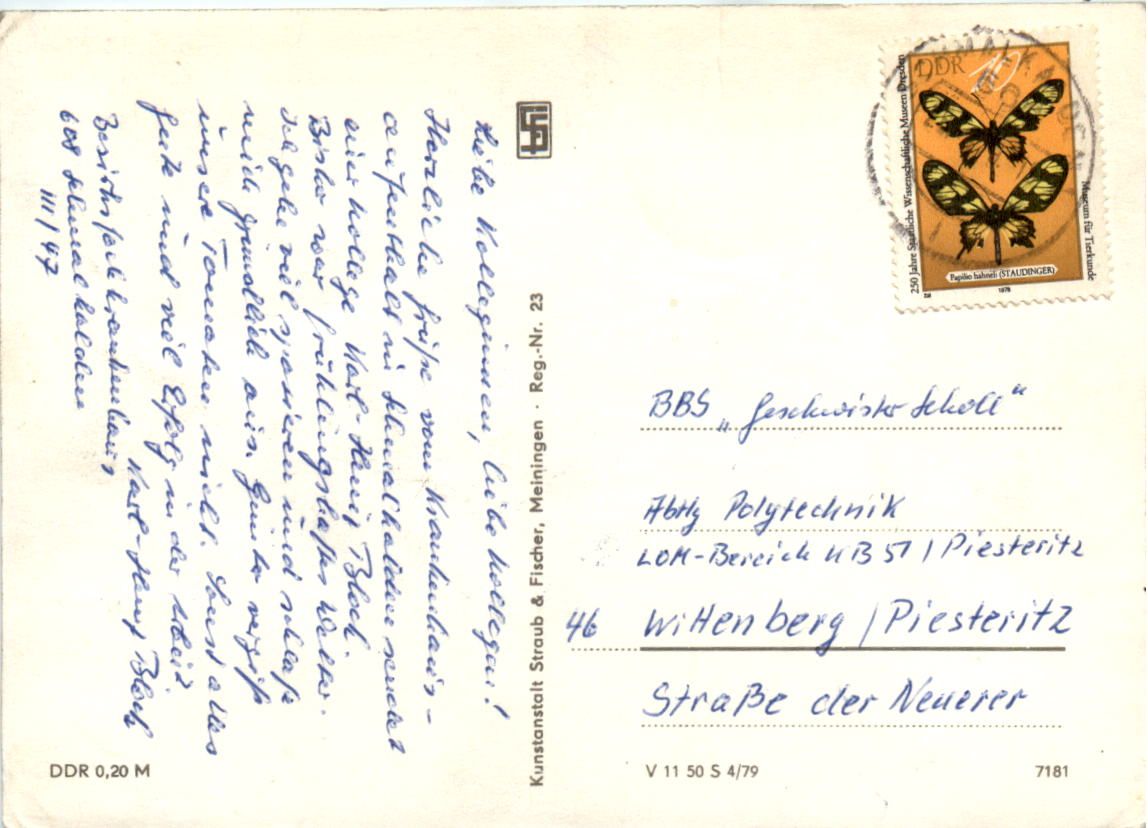 Liebe Kolleginnen, liebe Kollegen!
Herzliche Grüße vom Krankenhaus-
aufenthalt in Schmalkalden sendet
euer Kollege Karl-Heinz Bloch.
Bisher war frühlingshaftes Wetter.
Ich gehe viel spazieren und schlafe
mich gründlich aus. Günter vergiß
unsere Tomaten nicht. Sonst alles
Gute und viel Erfolg in der Arbeit
Karl-Heinz Bloch
Bezirksfachkrankenhaus
608 Schmalkalden
III/47
Kunstanstalt Straub & Fischer, Meiningen · Reg.-Nr. 23
DDR 0,20 M
DDR 10
250 Jahre Staatliche Wissenschaftliche Museen Dresden
Museum für Tierkunde
Papilio hahneli (STAUDINGER)
1978
BBS „Geschwister Scholl“
Abtlg Polytechnik
LOM-Bereich KB 51 / Piesteritz
46 Wittenberg / Piesteritz
Straße der Neuerer
V 11 50 S 4/79
7181